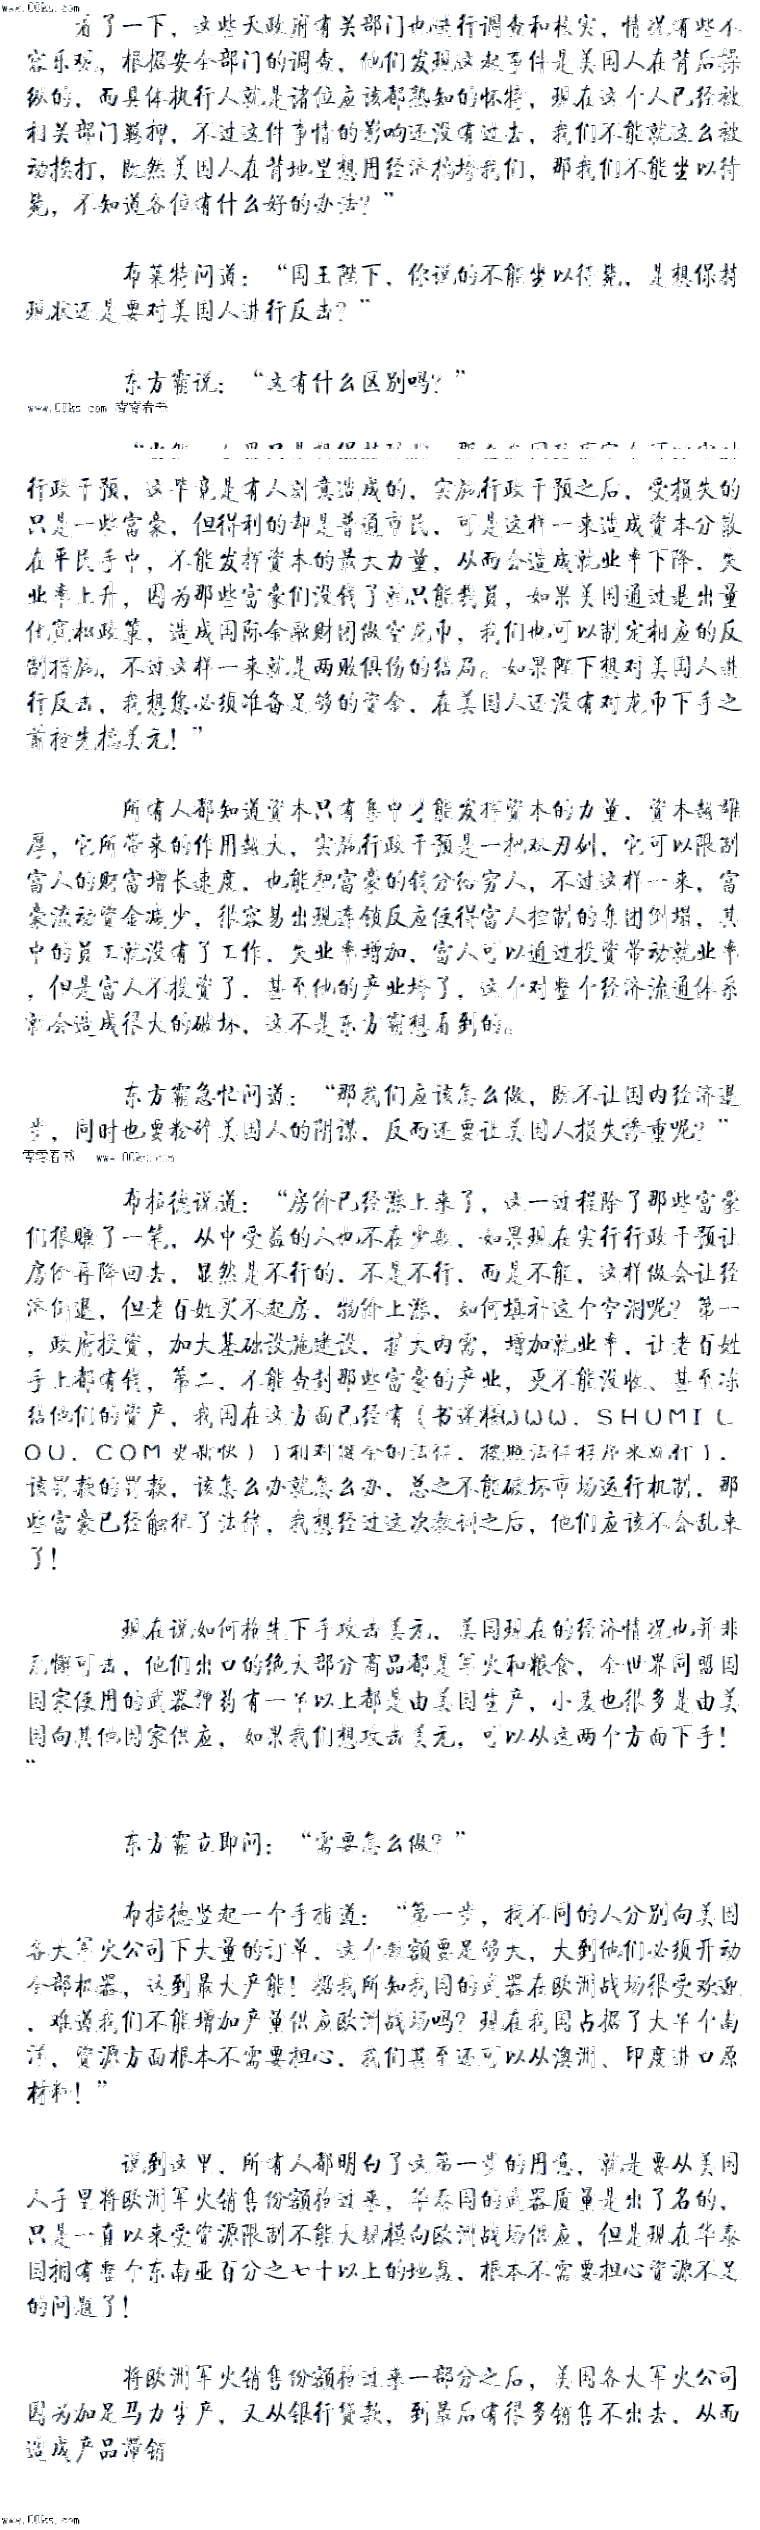 www.00ks.com
看了一下，这些天政府有关部门也进行调查和核实，情况有些不
容乐观，根据安全部门的调查，他们发现这起事件是美国人在背后操
纵的，而具体执行人就是诸位应该都熟知的怀特，现在这个人已经被
相关部门羁押，不过这件事情的影响还没有过去，我们不能就这么被
动挨打，既然美国人在背地里想用经济搞垮我们，那我们不能坐以待
毙，不知道各位有什么好的办法？”
布莱特问道：“国王陛下，你说的不能坐以待毙，是想保持
现状还是要对美国人进行反击？”
东方霸说：“这有什么区别吗？”
www.00ks.com 零零看书
行政干预，这毕竟是有人刻意造成的，实施行政干预之后，受损失的
只是一些富豪，但得利的却是普通市民，可是这样一来造成资本分散
在平民手中，不能发挥资本的最大力量，从而会造成就业率下降，失
业率上升，因为那些富豪们没钱了就只能裁员，如果美国通过退出量
化宽松政策，造成国际金融财团做空龙币，我们也可以制定相应的反
制措施，不过这样一来就是两败俱伤的结局。如果陛下想对美国人进
行反击，我想您必须准备足够的资金，在美国人还没有对龙币下手之
前抢先搞美元！”
所有人都知道资本只有集中才能发挥资本的力量，资本越雄
厚，它所带来的作用越大，实施行政干预是一把双刃剑，它可以限制
富人的财富增长速度，也能把富豪的钱分给穷人，不过这样一来，富
豪流动资金减少，很容易出现连锁反应使得富人控制的集团倒塌，其
中的员工就没有了工作，失业率增加，富人可以通过投资带动就业率
，但是富人不投资了，甚至他的产业垮了，这个对整个经济流通体系
就会造成很大的破坏，这不是东方霸想看到的。
东方霸急忙问道：“那我们应该怎么做，既不让国内经济退
步，同时也要粉碎美国人的阴谋，反而还要让美国人损失惨重呢？”
零零看书 www.00ks.com
布拉德说道：“房价已经涨上来了，这一过程除了那些富豪
们狠赚了一笔，从中受益的人也不在少数，如果现在实行行政干预让
房价再降回去，显然是不行的，不是不行，而是不能，这样做会让经
济倒退，但老百姓买不起房，物价上涨，如何填补这个空洞呢？第一
，政府投资，加大基础设施建设，扩大内需，增加就业率，让老百姓
手上都有钱，第二，不能查封那些富豪的产业，更不能没收、甚至冻
结他们的资产，我国在这方面已经有（书迷楼WWW．SHUMIL
OU．COM更新快））相对健全的法律，按照法律程序来断行，
该罚款的罚款，该怎么办就怎么办，总之不能破坏市场运行机制，那
些富豪已经触犯了法律，我想经过这次教训之后，他们应该不会乱来
了！
现在说如何抢先下手攻击美元，美国现在的经济情况也并非
无懈可击，他们出口的绝大部分商品都是军火和粮食，全世界同盟国
国家使用的武器弹药有一半以上都是由美国生产，小麦也很多是由美
国向其他国家供应，如果我们想攻击美元，可以从这两个方面下手！
“
东方霸立即问：“需要怎么做？”
布拉德竖起一个手指道：“第一步，找不同的人分别向美国
各大军火公司下大量的订单，这个数额要足够大，大到他们必须开动
全部机器，达到最大产能！据我所知我国的武器在欧洲战场很受欢迎
，难道我们不能增加产量供应欧洲战场吗？现在我国占据了大半个南
洋，资源方面根本不需要担心，我们甚至还可以从澳洲、印度进口原
材料！”
说到这里，所有人都明白了这第一步的用意，就是要从美国
人手里将欧洲军火销售份额抢过来，华泰国的武器质量是出了名的，
只是一直以来受资源限制不能大规模向欧洲战场供应，但是现在华泰
国拥有整个东南亚百分之七十以上的地盘，根本不需要担心资源不足
的问题了！
将欧洲军火销售份额抢过来一部分之后，美国各大军火公司
因为加足马力生产，又从银行贷款，到最后有很多销售不出去，从而
造成产品滞销
www.00ks.com